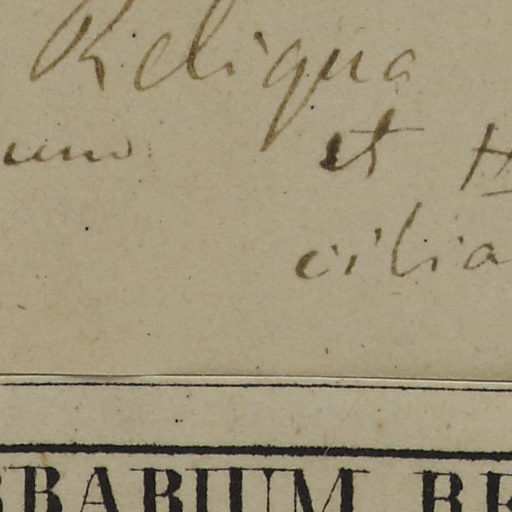 Reliqua
et H
cilia
RBARIUM BE